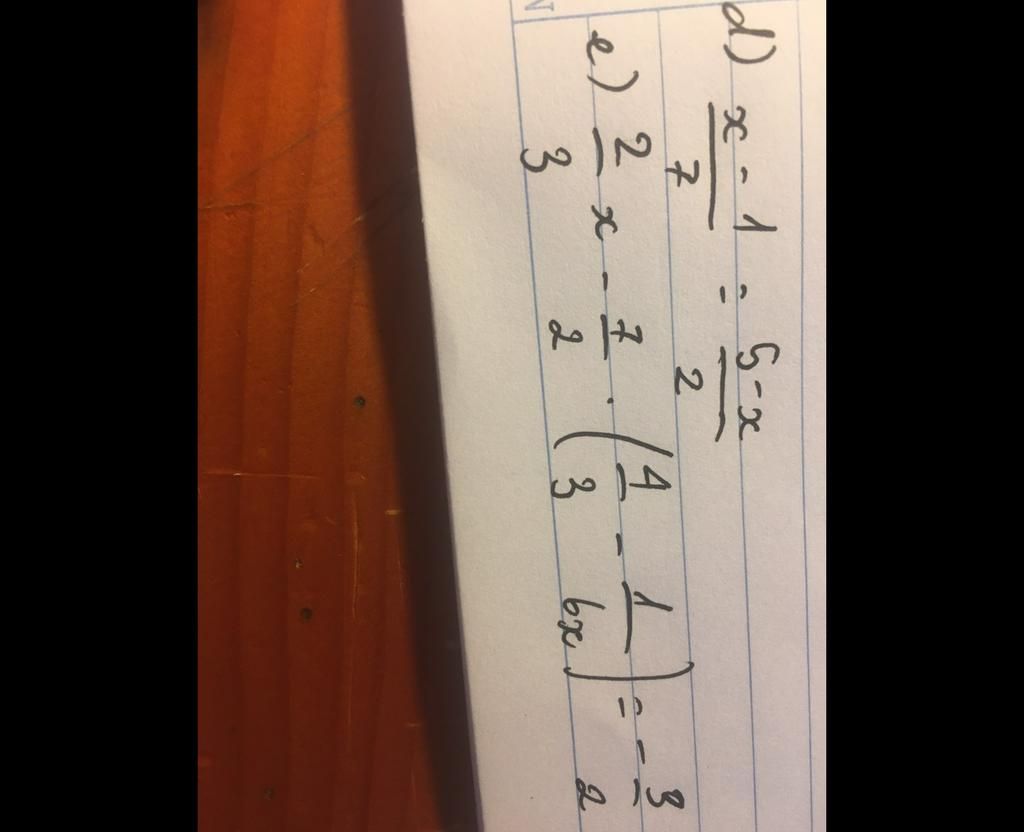 d) \frac{x-1}{7} = \frac{5-x}{2}
e) \frac{2}{3} x - \frac{7}{2} . ( \frac{1}{3} - \frac{1}{6x} ) = - \frac{3}{2}